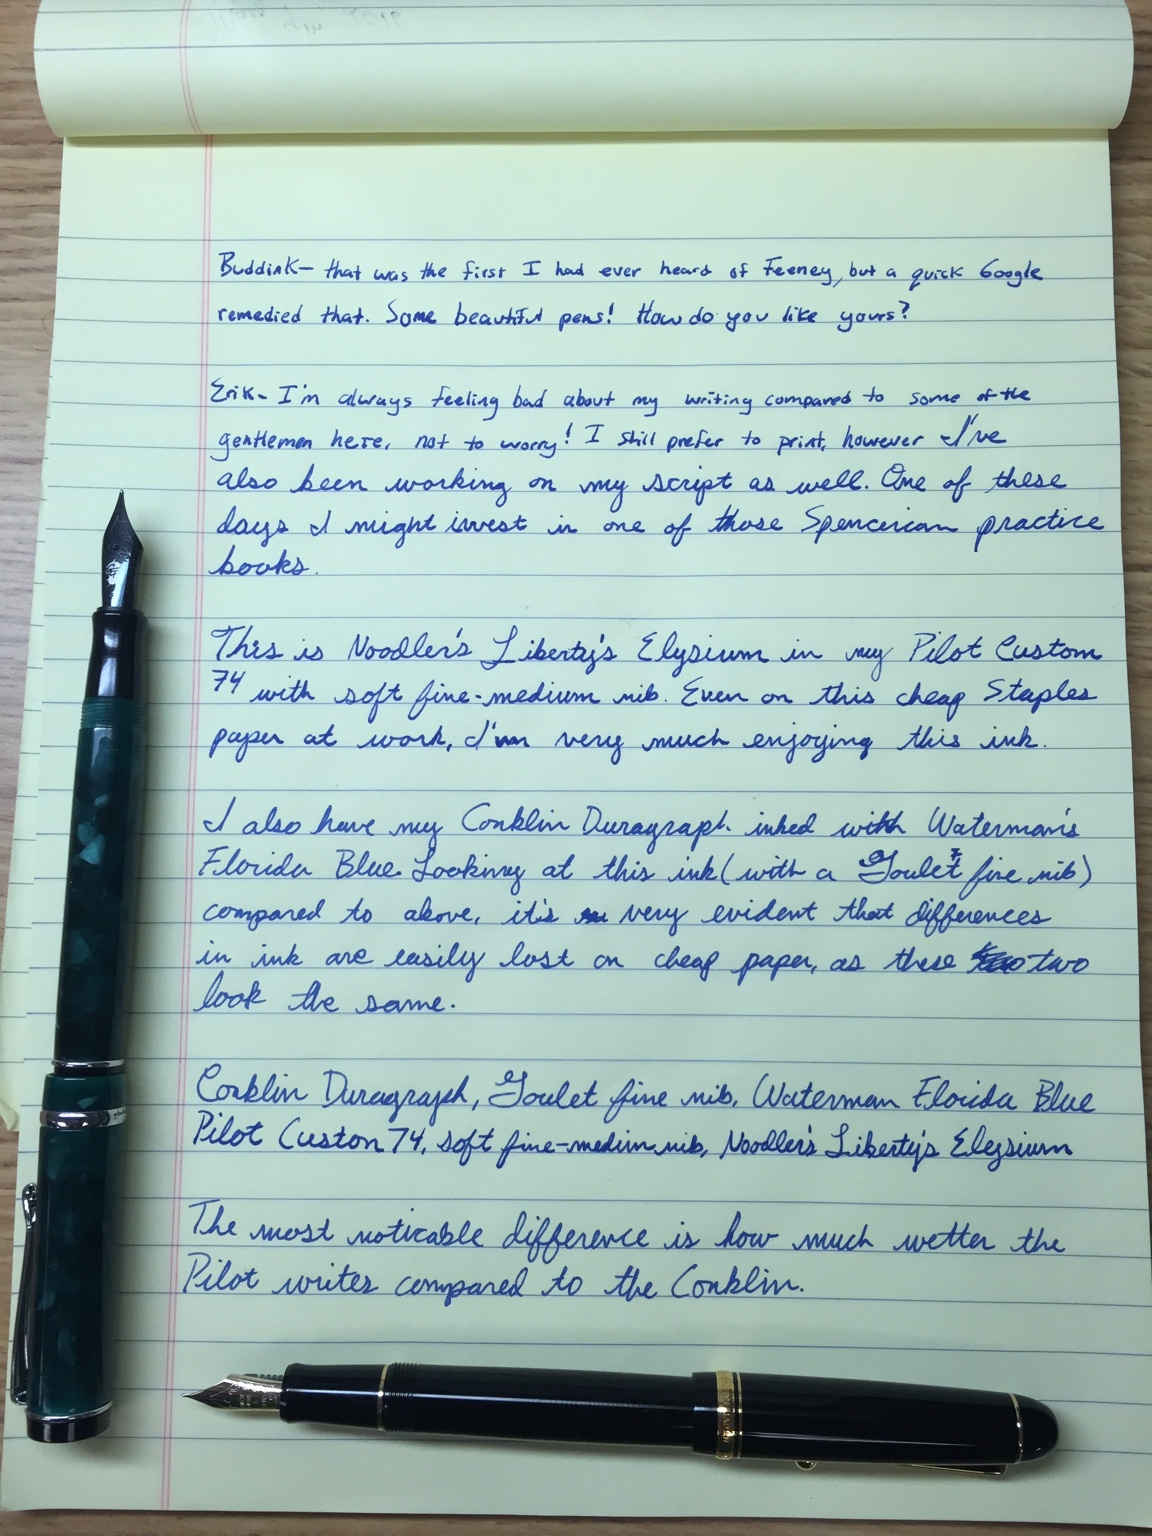 Buddink- that was the first I had ever heard of Feeney, but a quick Google
remedied that. Some beautiful pens! How do you like yours?
Erik- I'm always feeling bad about my writing compared to some of the
gentlemen here, not to worry! I still prefer to print, however I've
also been working on my script as well. One of these
days I might invest in one of those Spencerian practice
books.
This is Noodler's Liberty's Elysium in my Pilot Custom
74 with soft fine-medium nib. Even on this cheap Staples
paper at work, I'm very much enjoying this ink.
I also have my Conklin Duragraph inked with Waterman's
Florida Blue. Looking at this ink (with a Goulet fine nib)
compared to above, it's very evident that differences
in ink are easily lost on cheap paper, as these two
look the same.
Conklin Duragraph, Goulet fine nib, Waterman Florida Blue
Pilot Custon 74, soft fine-medium nib, Noodler's Liberty's Eleysium
The most noticable difference is how much wetter the
Pilot writes compared to the Conklin.